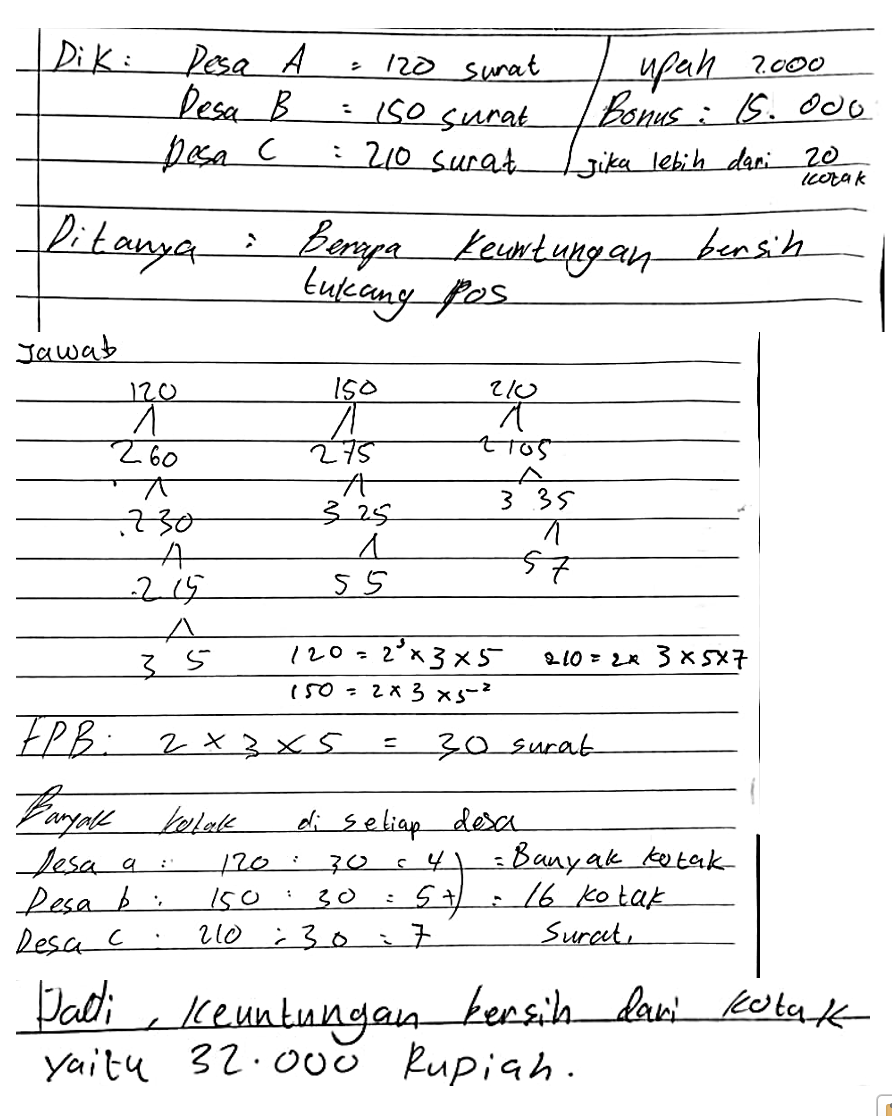 Dik: Desa A = 120 surat / upah 2.000
Desa B = 150 surat / Bonus : 15.000
Desa C : 210 surat / jika lebih dari 20 kotak
Ditanya : Berapa keuntungan bersih
tukang pos
Jawab
120 150 210
2 60 2 75 2 105
2 30 3 25 3 35
2 15 5 5 5 7
3 5 120 = 2³ x 3 x 5 210 = 2 x 3 x 5 x 7
150 = 2 x 3 x 5²
FPB: 2 x 3 x 5 = 30 surat
Banyak kotak di setiap desa
Desa a : 120 : 30 = 4 ) = Banyak kotak
Desa b : 150 : 30 = 5 + ) = 16 kotak
Desa C : 210 : 30 = 7 Surat.
Jadi, keuntungan bersih dari kotak
yaitu 32.000 Rupiah.